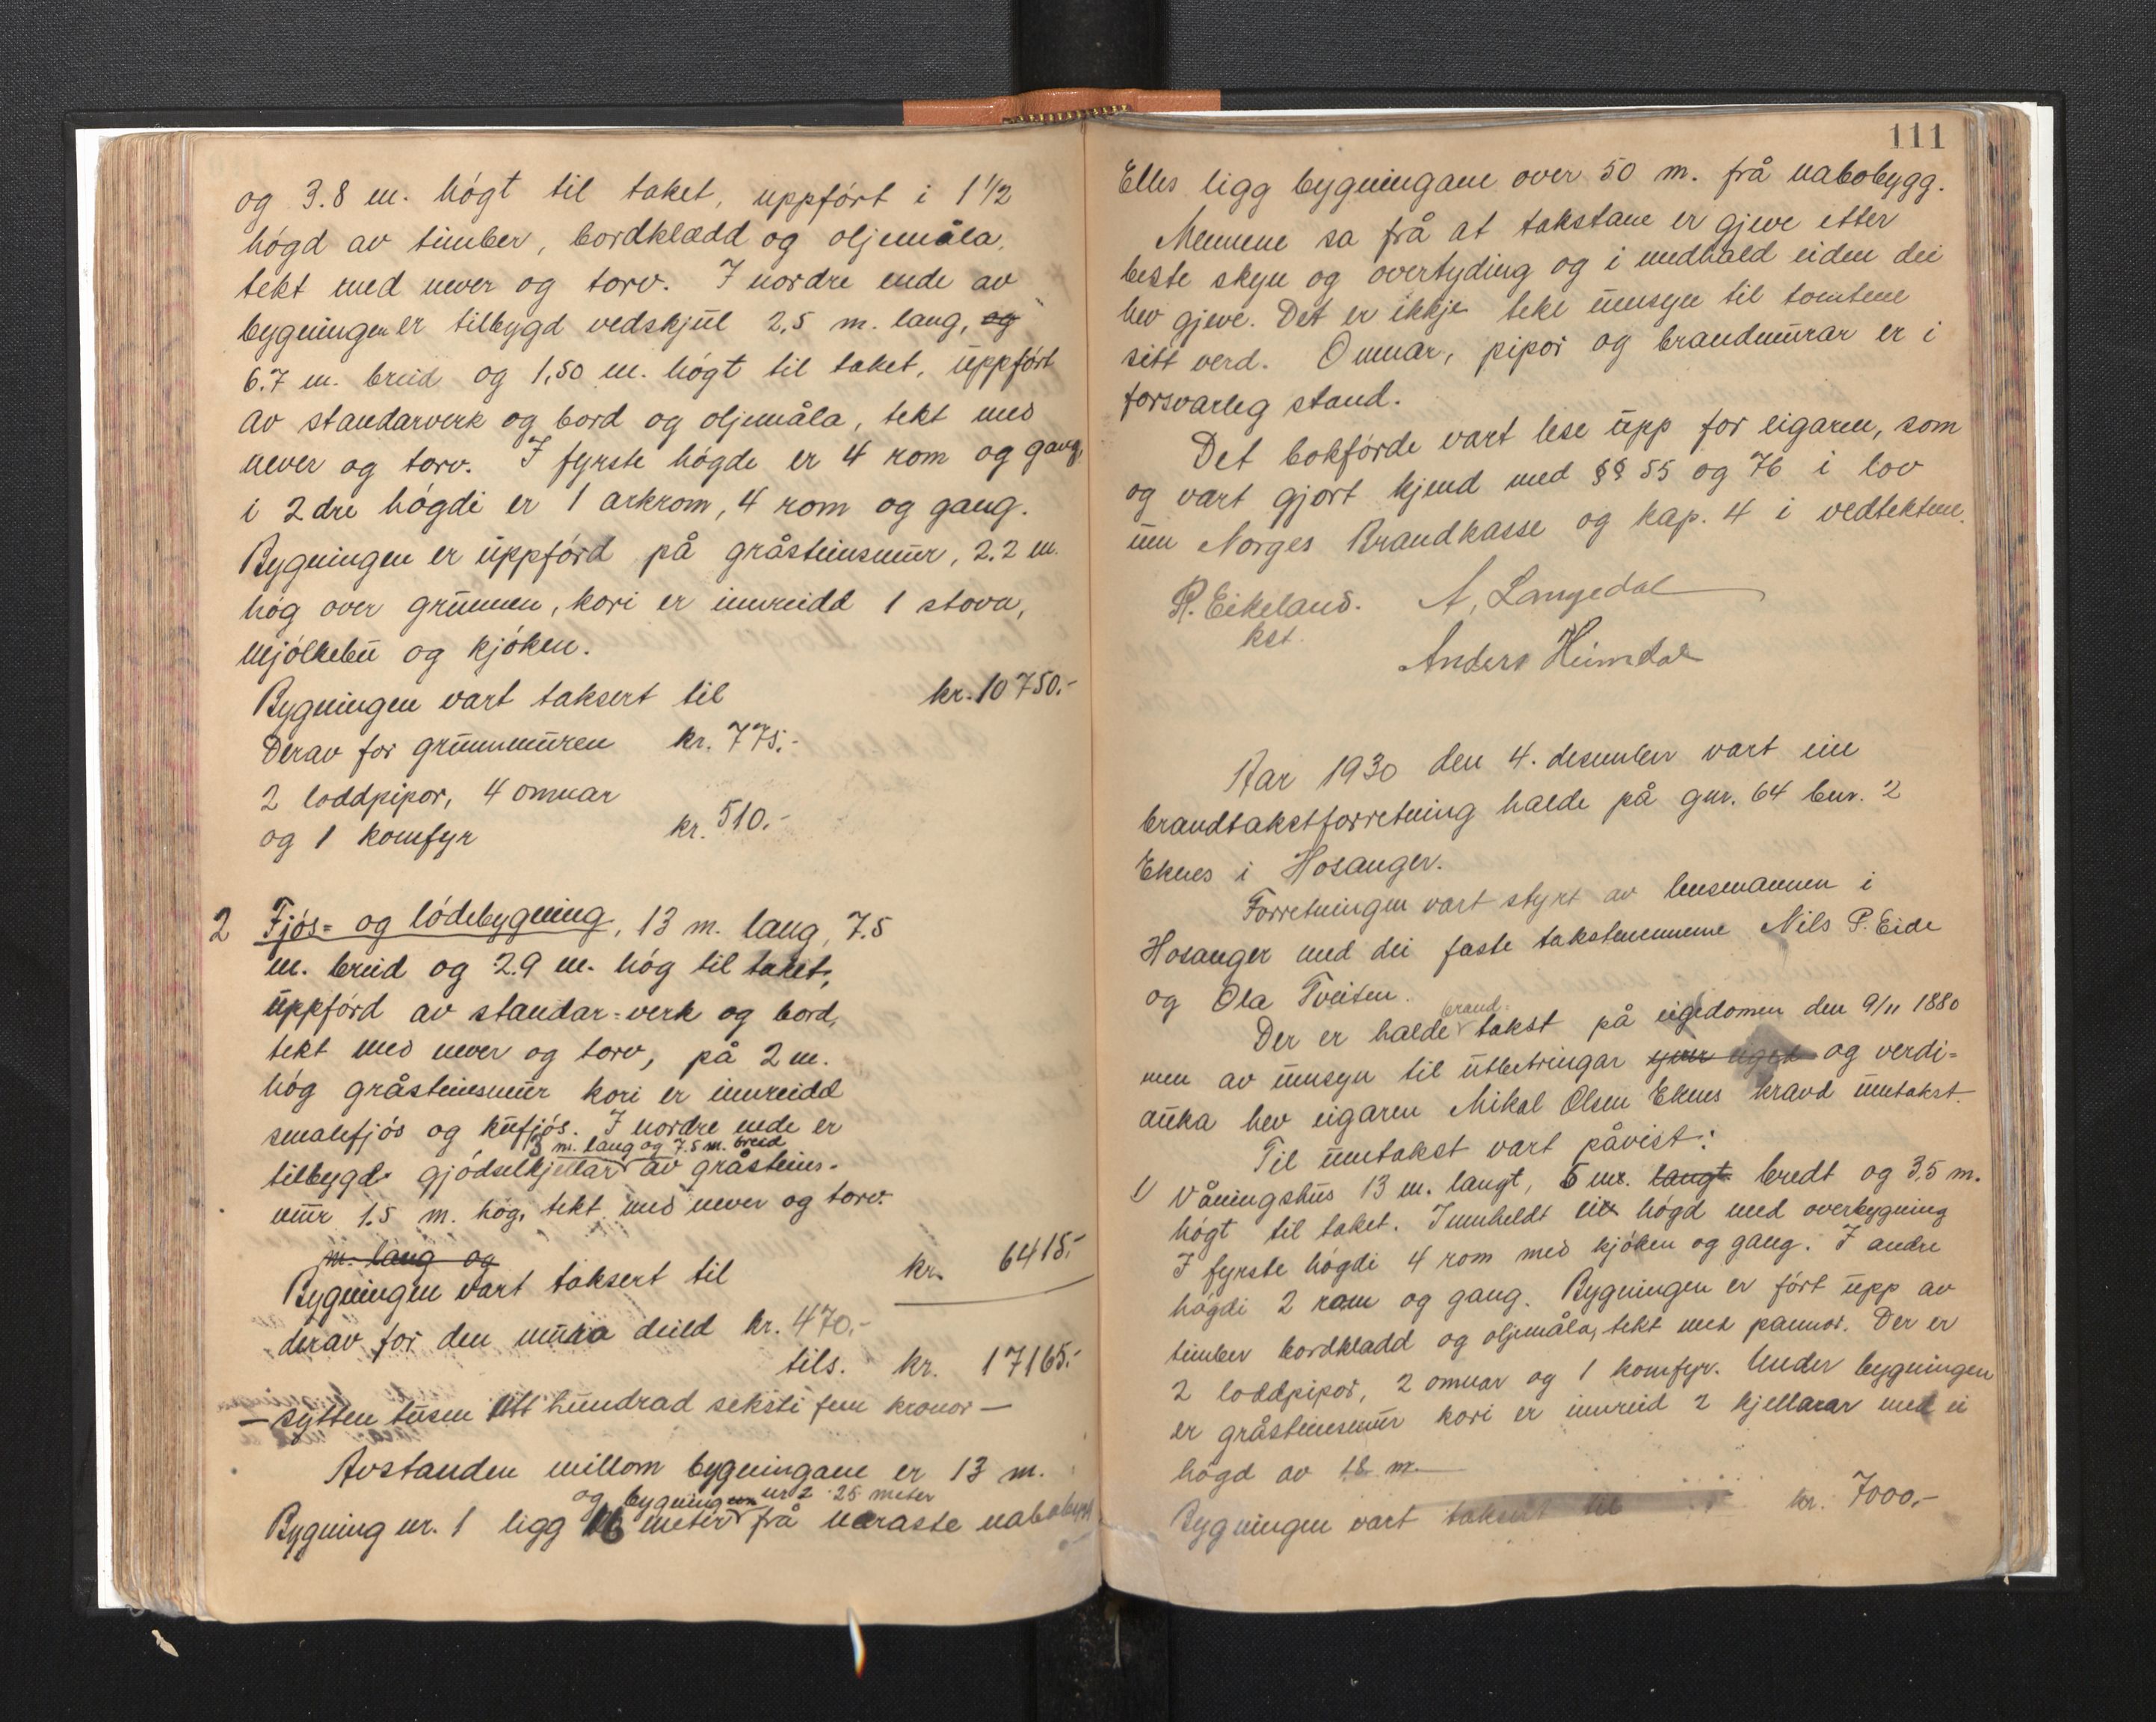 og 3.8 m. högt til taket, uppfört i 1 1/2
högd av timber, bordklædd og oljemåla,
tekt med never og torv. I nordre ende av
bygningen er tilbygd vedskjul 2,5 m. lang, og
6.7 m. breid og 1,50 m. högt til taket, uppfört
av standarverk og bord og oljemåla, tekt med
never og torv. I fyrste högde er 4 rom og gang,
i 2dre högdi er 1 arkrom, 4 rom og gang.
Bygningen er uppförd på gråsteinsmur, 2.2 m.
hög over grunnen, kori er innreidd 1 stova,
mjölkebu og kjöken.
Bygningen vart taksert til kr. 10750.-
Derav for grunnmuren kr. 775.-
2 loddpipor, 4 omnar
og 1 komfyr kr. 510.-
2 Fjös- og lödebygning, 13 m. lang, 7.5
m. breid og 2.9 m. hög til taket,
uppförd av standar-verk og bord,
tekt med never og torv, på 2 m.
hög gråsteinsmur kori er innreidd
smalefjös og kufjös. I nordre ende er
3 m. lang og 7.5 m. breid
tilbygd gjödselkjellar av gråsteins-
mur 1.5 m. hög, tekt med never og torv.
m. lang og
Bygningen vart taksert til kr. 6415.-
derav for den mura deild kr. 470.-
tils. kr. 17165.-
- sytten tusen ett hundrad seksti fem kronor -
Avstanden millom bygningane er 13 m.
og bygningen nr 2 25 meter
Bygning nr. 1 ligg 16 meter frå næraste nabobygg
111
Elles ligg bygningane over 50 m. frå nabobygg.
Mennene sa frå at takstane er gjeve etter
beste skyn og overtyding og i medhald eiden dei
hev gjeve. Det er ikkje teke umsyn til tomtene
sitt verd. Omnar, pipor og brandmurar er i
forsvarleg stand.
Det bokförde vart lese upp for eigaren, som
og vart gjort kjend med §§ 55 og 76 i lov
um Norges Brandkasse og kap. 4 i vedtektene.
R. Eikeland. A. Langedal
kst.
Anders Heimdal
Aar 1930 den 4. desember vart ein
brandtakstforretning halde på gnr. 64 bnr. 2
Eknes i Hosanger.
Forretningen vart styrt av lensmannen i
Hosanger med dei faste takstmennene Nils P. Eide
og Ola Tveiten.
brand-
Der er halde takst på eigedomen den 9/11 1880
men av umsyn til utbetringar og verdi-
auka hev eigaren Mikal Olsen Eknes kravd umtakst.
Til umtakst vart påvist:
1) Våningshus 13 m. langt, 6 m. langt bredt og 3,5 m.
högt til taket. Innheldt ein högd med overbygning
I fyrste högdi 4 rom med kjöken og gang. I andre
högdi 2 rom og gang. Bygningen er fört upp av
timber bordkladd og oljemåla, tekt med pannor. Der er
2 loddpipor, 2 omnar og 1 komfyr. Under bygningen
er gråsteinsmur kori er innreid 2 kjellarar med ei
högd av 18 m.
Bygningen vart taksert til kr. 7000,-